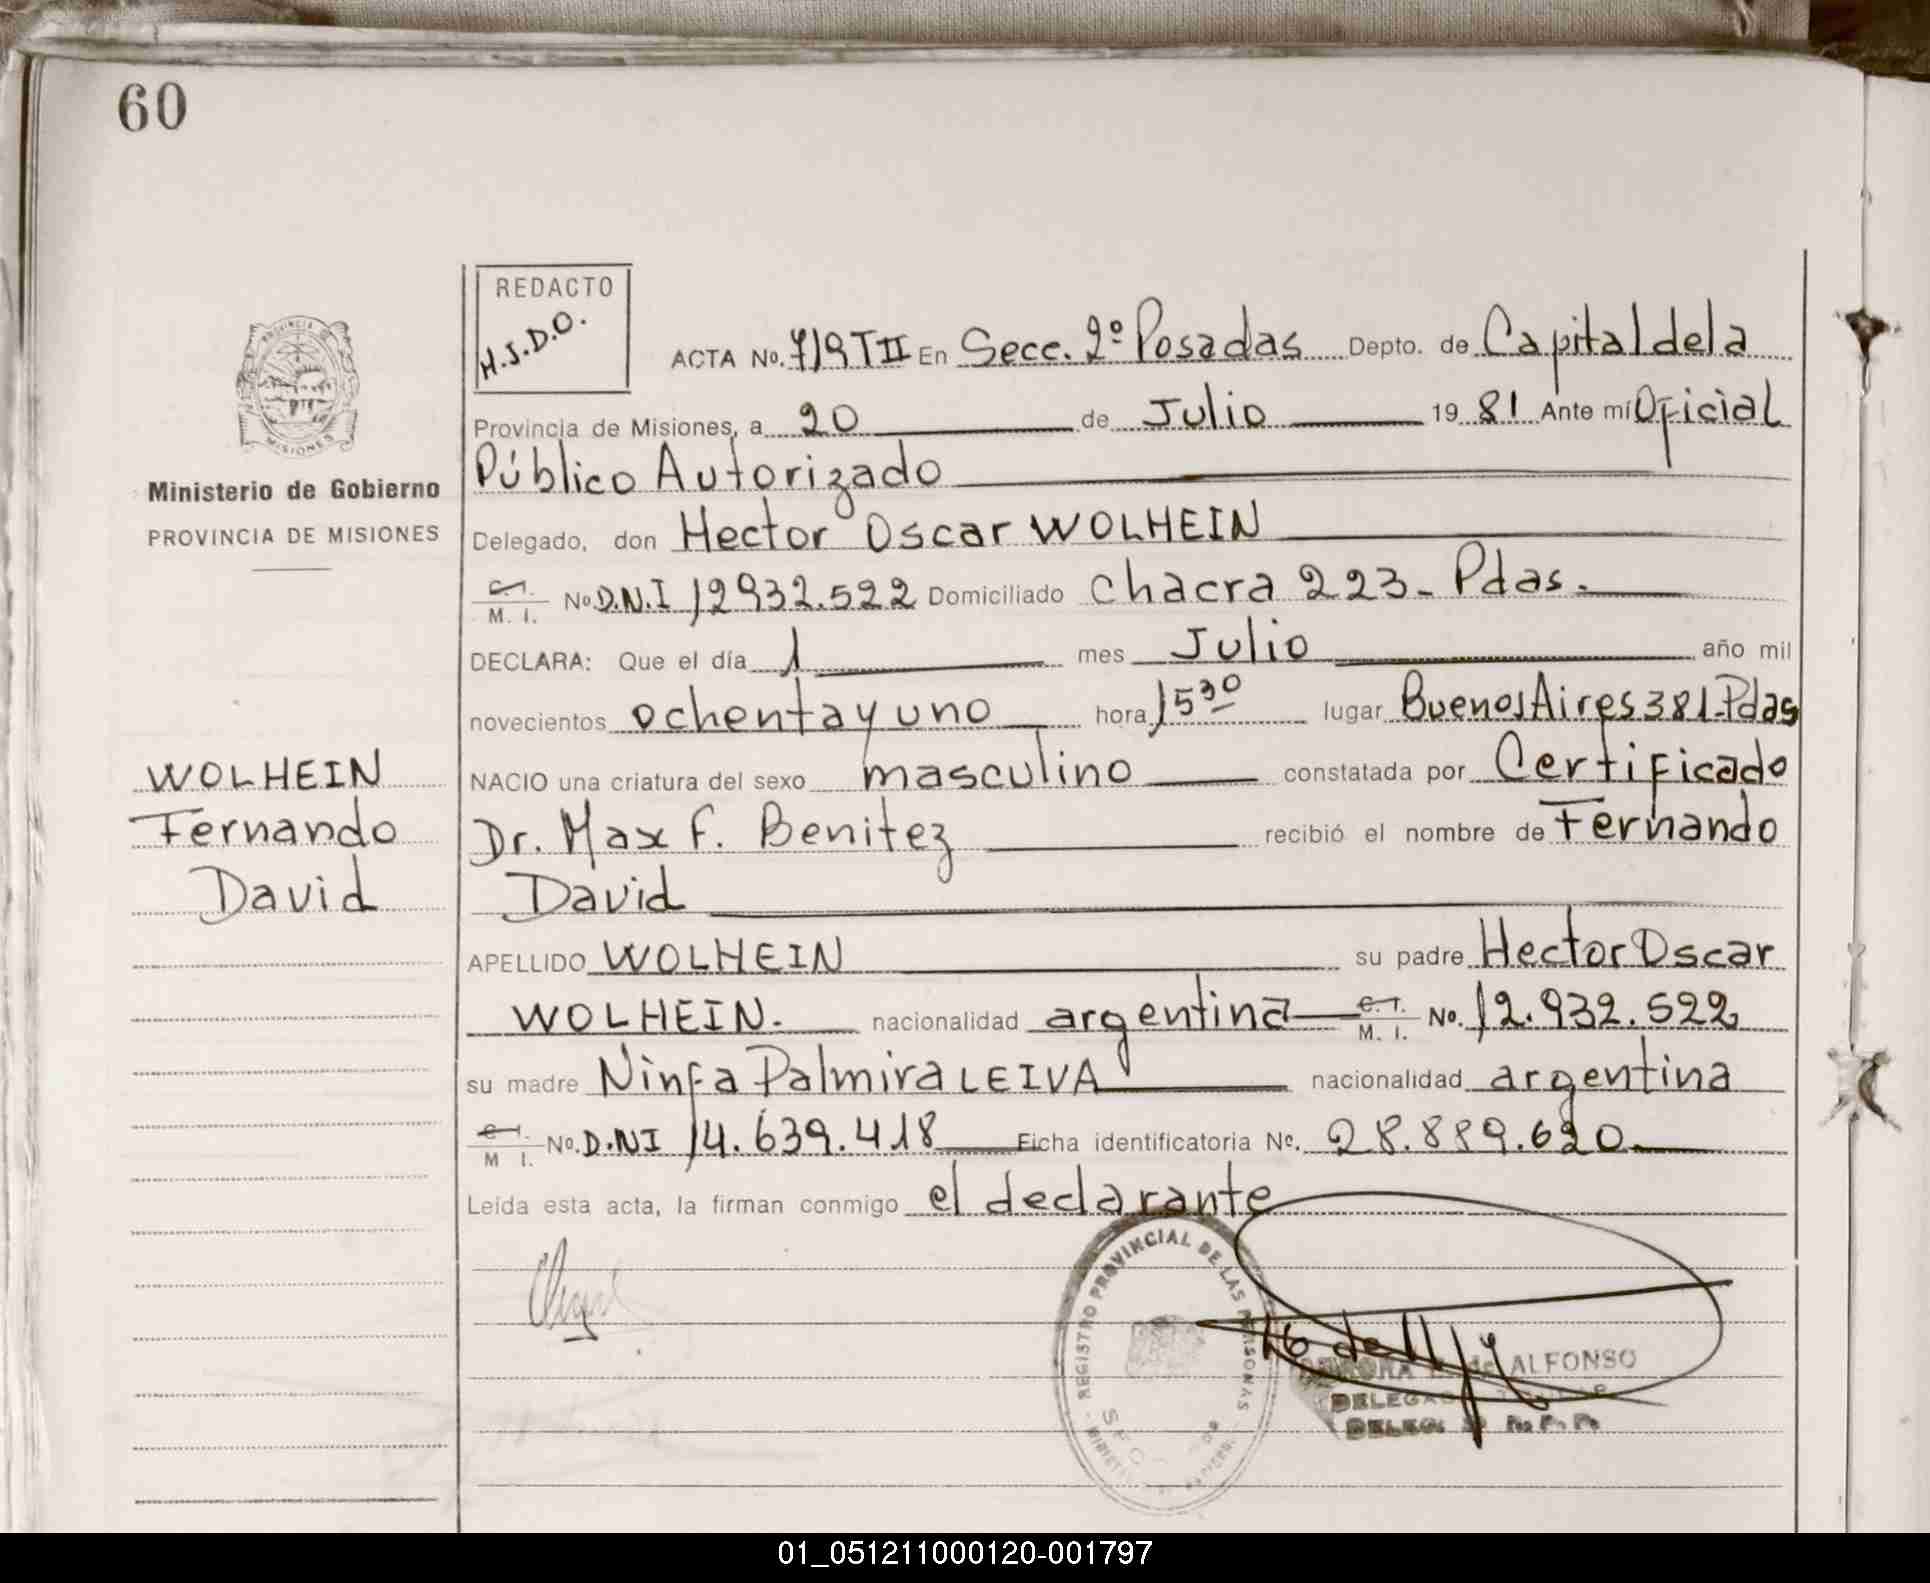 60
REDACTO
H.J.D.O.
PROVINCIA DE
MISIONES
Ministerio de Gobierno
PROVINCIA DE MISIONES
ACTA No. 719TII En Secc. 2º Posadas Depto. de Capital de la
Provincia de Misiones, a 20 de Julio 19 81 Ante mí Oficial
Público Autorizado
Delegado, don Hector Oscar WOLHEIN
C. I. / M. I. No D.N.I 12932.522 Domiciliado chacra 223- Pdas.
DECLARA: Que el día 1 mes Julio año mil
novecientos ochenta y uno hora 15 30 lugar Buenos Aires 381-Pdas
NACIO una criatura del sexo masculino constatada por Certificado
Dr. Max F. Benitez recibió el nombre de Fernando
David
APELLIDO WOLHEIN su padre Hector Oscar
WOLHEIN. nacionalidad argentina C. I. / M. I. No. 12.932.522
su madre Ninfa Palmira LEIVA nacionalidad argentina
C. I. / M I. No. D.NI 14.639.418 Ficha identificatoria Nº. 28.889.620
Leída esta acta, la firman conmigo el declarante
WOLHEIN
Fernando
David
REGISTRO PROVINCIAL DE LAS PERSONAS
de ALFONSO
01_051211000120-001797